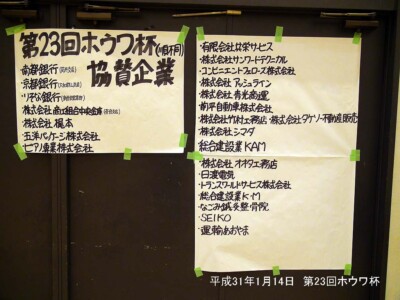 第23回ホウワ杯(順不同)
協賛企業
・南都銀行
・京都銀行
・りそな銀行
・株式会社 商工組合中央金庫
・株式会社 榎本
・五洋パッケージ株式会社
・七アノ商業株式会社
・有限会社 共栄サービス
・株式会社サンワードテクニカル
・コンビニエントフォローズ株式会社
・株式会社アッシュライン
・株式会社 青光商運
・前平自動車株式会社
・株式会社竹村工務店・株式会社タケソー不動産販売
・株式会社シマダ
総合建設業 KAM
・株式会社 オオタ工務店
・日渡電気
・トランスワールドサービス株式会社
・総合建設業K・M
・なごみ鍼灸整骨院
・SEIKO
・運輸あおやま
平成31年1月14日 第23回ホウワ杯